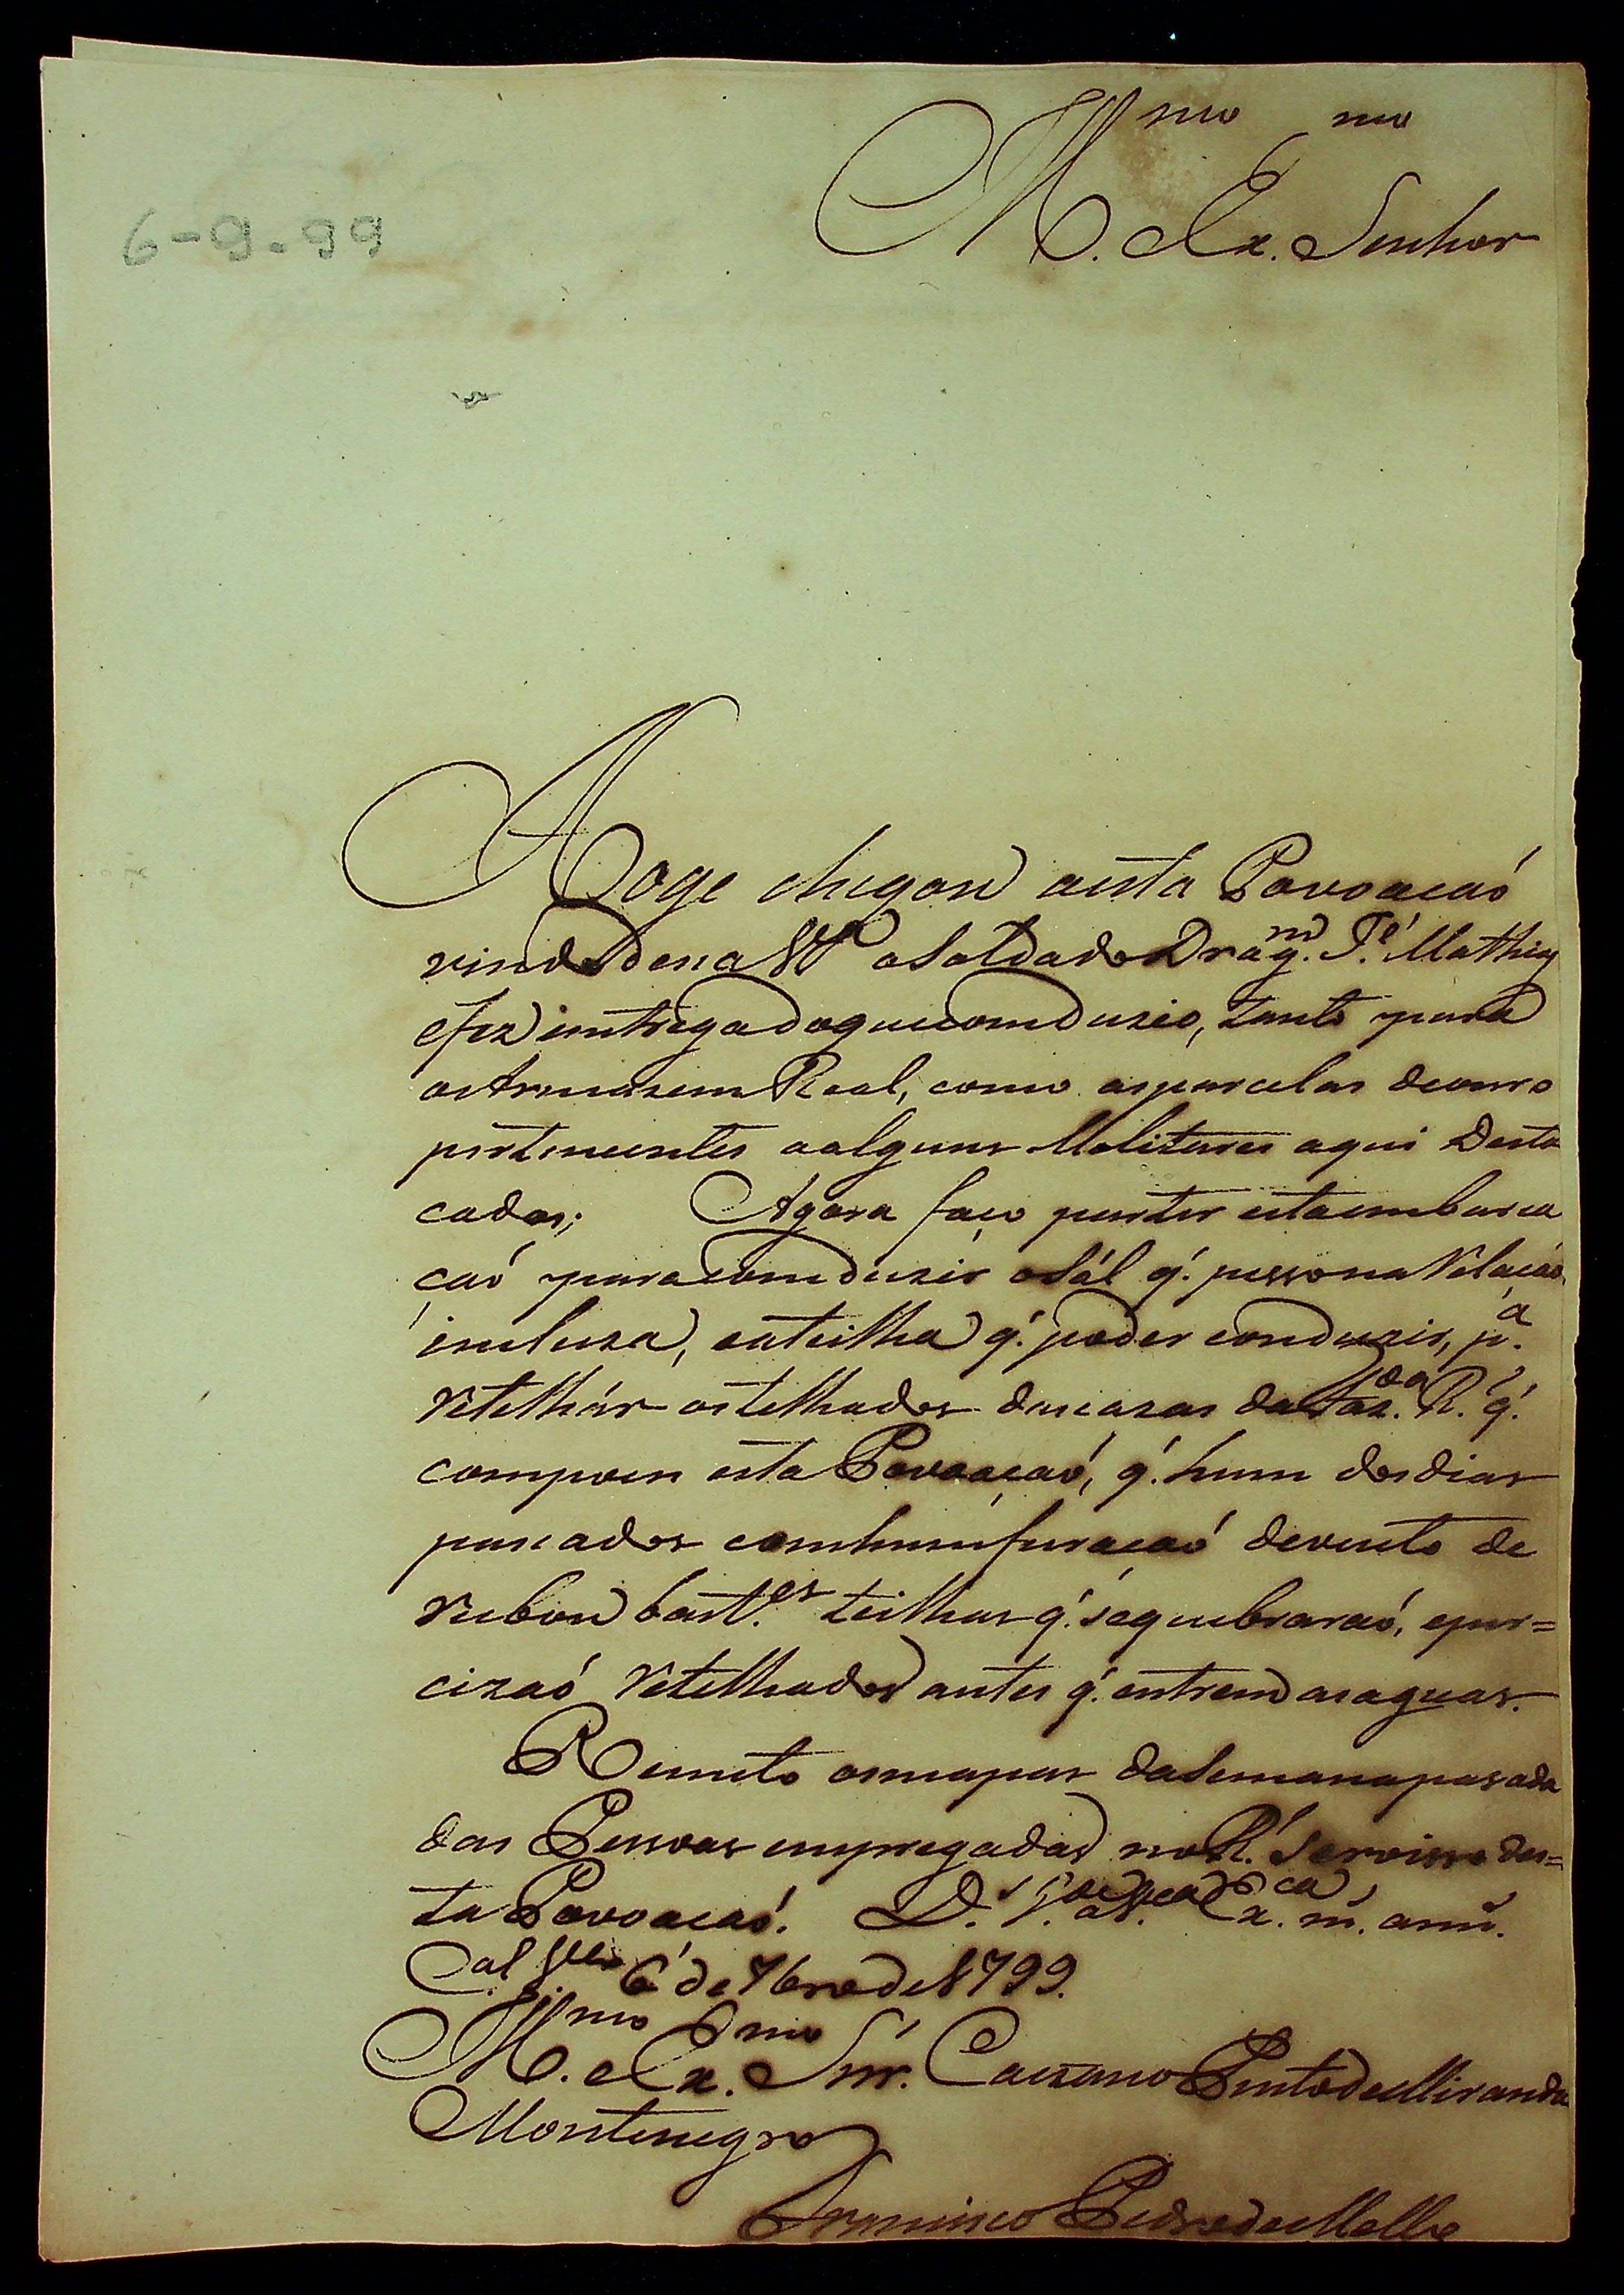 Ill.mo e Ex.mo Senhor
6-9-99
Hoge chegou aesta Povoacaó
vindo dessa V.a oSoldado Drag.m J.e Mathias
efez emtrega doquecomduzio, tanto para
os Armasem Real, como asparcelas deouro
pertencentes aalguns Melitares aqui Desta
cados; Agora faço partir estaembarca
caó paracomduzir oSál q̃. pessona Relacaó
incluza, eateilha q̃. poder conduzir, p.a
Retelhár ostelhados dascazas daFaz.da R. q̃.
compoem esta Povoaçaó, q̃. hum dosdias
pasados comhumfuracaó devento de
Rubou bast.es teilhas q̃. sequebraraó, epre=
cizaó Retelhados antes q̃. entrem asaguas.
Remeto osmapas daSemanapasada
das Pessoas empregadas noR.l Servisso des=
ta Povoacaó. D.s g.de a V. Ex.ca m. ann.
Cazal V.co 6 de 7bro de 1799.
Ill.mo e Ex.mo Snr. Caetano Pinto de Miranda
Montenegro
Francisco Pedro de Mello